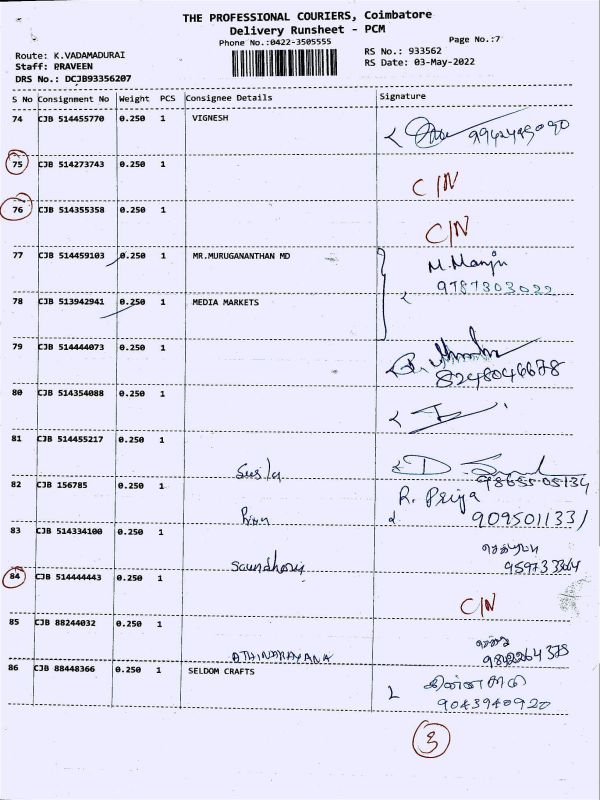 THE PROFESSIONAL COURIERS, Coimbatore
Delivery Runsheet - PCM
Phone No.:0422-3505555
Page No.:7
Route: K.VADAMADURAI
RS No.: 933562
Staff: PRAVEEN
RS Date: 03-May-2022
DRS No.: DCJB93356207
S No Consignment No Weight PCS Consignee Details Signature
74 CJB 514455770 0.250 1 VIGNESH
75 CJB 514273743 0.250 1 C/N
76 CJB 514355358 0.250 1 C/N
77 CJB 514459103 0.250 1 MR.MURUGANANTHAN MD M.Manju
9787303022
78 CJB 513942941 0.250 1 MEDIA MARKETS
79 CJB 514444073 0.250 1
8248046678
80 CJB 514354088 0.250 1
81 CJB 514455217 0.250 1
Susila
98655 05134
82 CJB 156785 0.250 1 R. Priya
Priya 9095011331
83 CJB 514334100 0.250 1
84 CJB 514444443 0.250 1 C/N
85 CJB 88244032 0.250 1
ATHINARAYANA 9842264378
86 CJB 88448366 0.250 1 SELDOM CRAFTS
9043940920
3